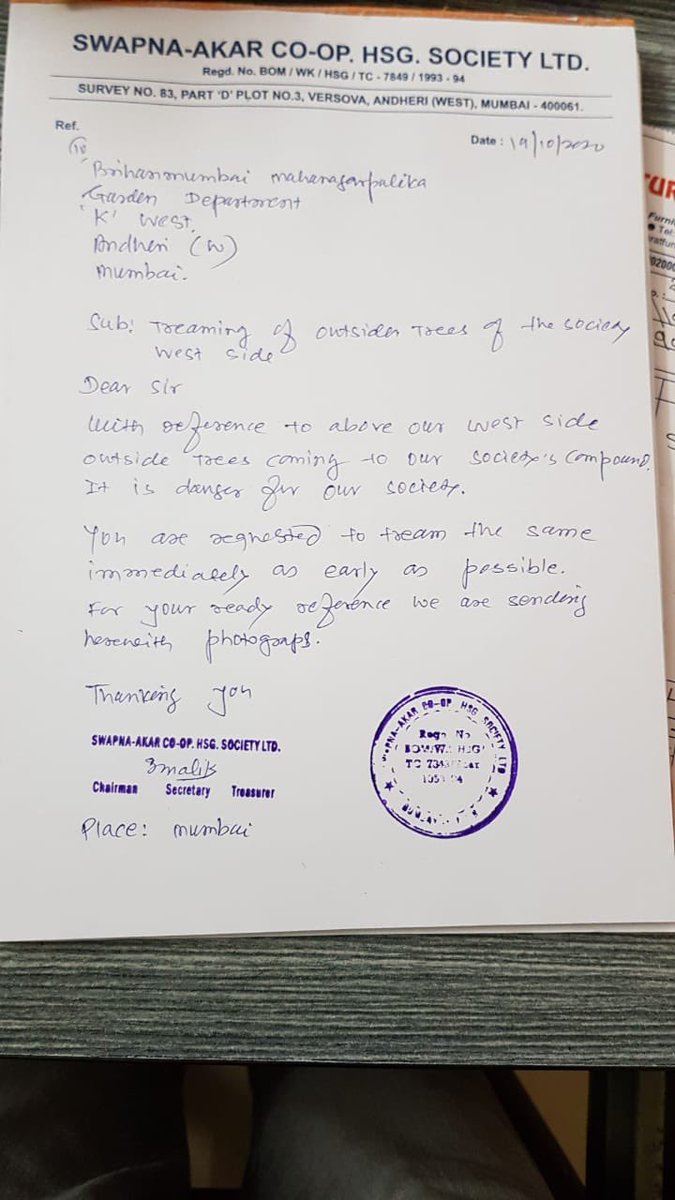 SWAPNA-AKAR CO-OP. HSG. SOCIETY LTD.
Regd. No. BOM / WK / HSG / TC - 7849 / 1993 - 94
SURVEY NO. 83, PART 'D' PLOT NO.3, VERSOVA, ANDHERI (WEST), MUMBAI - 400061.
Ref.
Date : 19/10/2020
To
Brihanmumbai mahanagarpalika
Garden Department
'K' West
Andheri (W)
Mumbai.
Sub: Treaming of outsider Trees of the society
west side
Dear Sir
With reference to above our west side
outside Trees coming to our society's compound.
It is danger for our society.
You are requested to tream the same
immediately as early as possible.
For your ready reference we are sending
herewith photograps.
Thanking you
SWAPNA-AKAR CO-OP. HSG. SOCIETY LTD.
Chairman Secretary Treasurer
SWAPNA-AKAR CO-OP HSG SOCIETY LTD
Regn No
Place: Mumbai